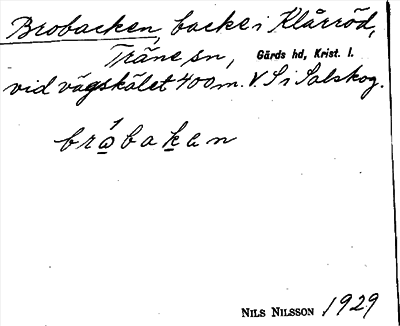 Brobacken, backe i Klårröd,
Träne sn, Gärds hd, Krist. l.
vid vägskälet 400 m. V. S i Salskog.
bròbakan
NILS NILSSON 1929